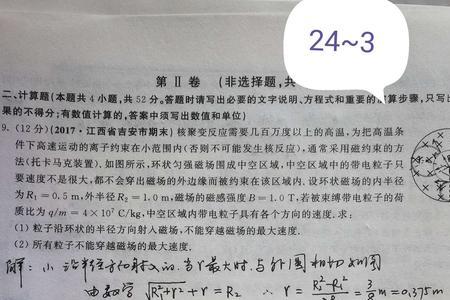 24~3
第Ⅱ卷 (非选择题,共
二、计算题(本题共4小题,共52分。答题时请写出必要的文字说明、方程式和重要的演算步骤,只写出
果的不得分;有数值计算的,答案中须写出数值和单位)
9.(12分)(2017·江西省吉安市期末)核聚变反应需要几百万度以上的高温,为把高温条
件下高速运动的离子约束在小范围内(否则不可能发生核反应),通常采用磁约束的方
法(托卡马克装置).如图所示,环状匀强磁场围成中空区域,中空区域中的带电粒子只
要速度不是很大,都不会穿出磁场的外边缘而被约束在该区域内.设环状磁场的内半径
为R₁=0.5m,外半径R₂=1.0m,磁场的磁感强度B=1.0T,若被束缚带电粒子的荷
质比为q/m=4×10⁷C/kg,中空区域内带电粒子具有各个方向的速度.求:
(1)粒子沿环状的半径方向射入磁场,不能穿越磁场的最大速度.
(2)所有粒子不能穿越磁场的最大速度.
解: 1) 沿半径方向射入的.当r最大时.与外圆相切如图
由数学 √R₁²+r² + r = R₂ ∴ r = R₂²-R₁² = 3/8 m = 0.375m